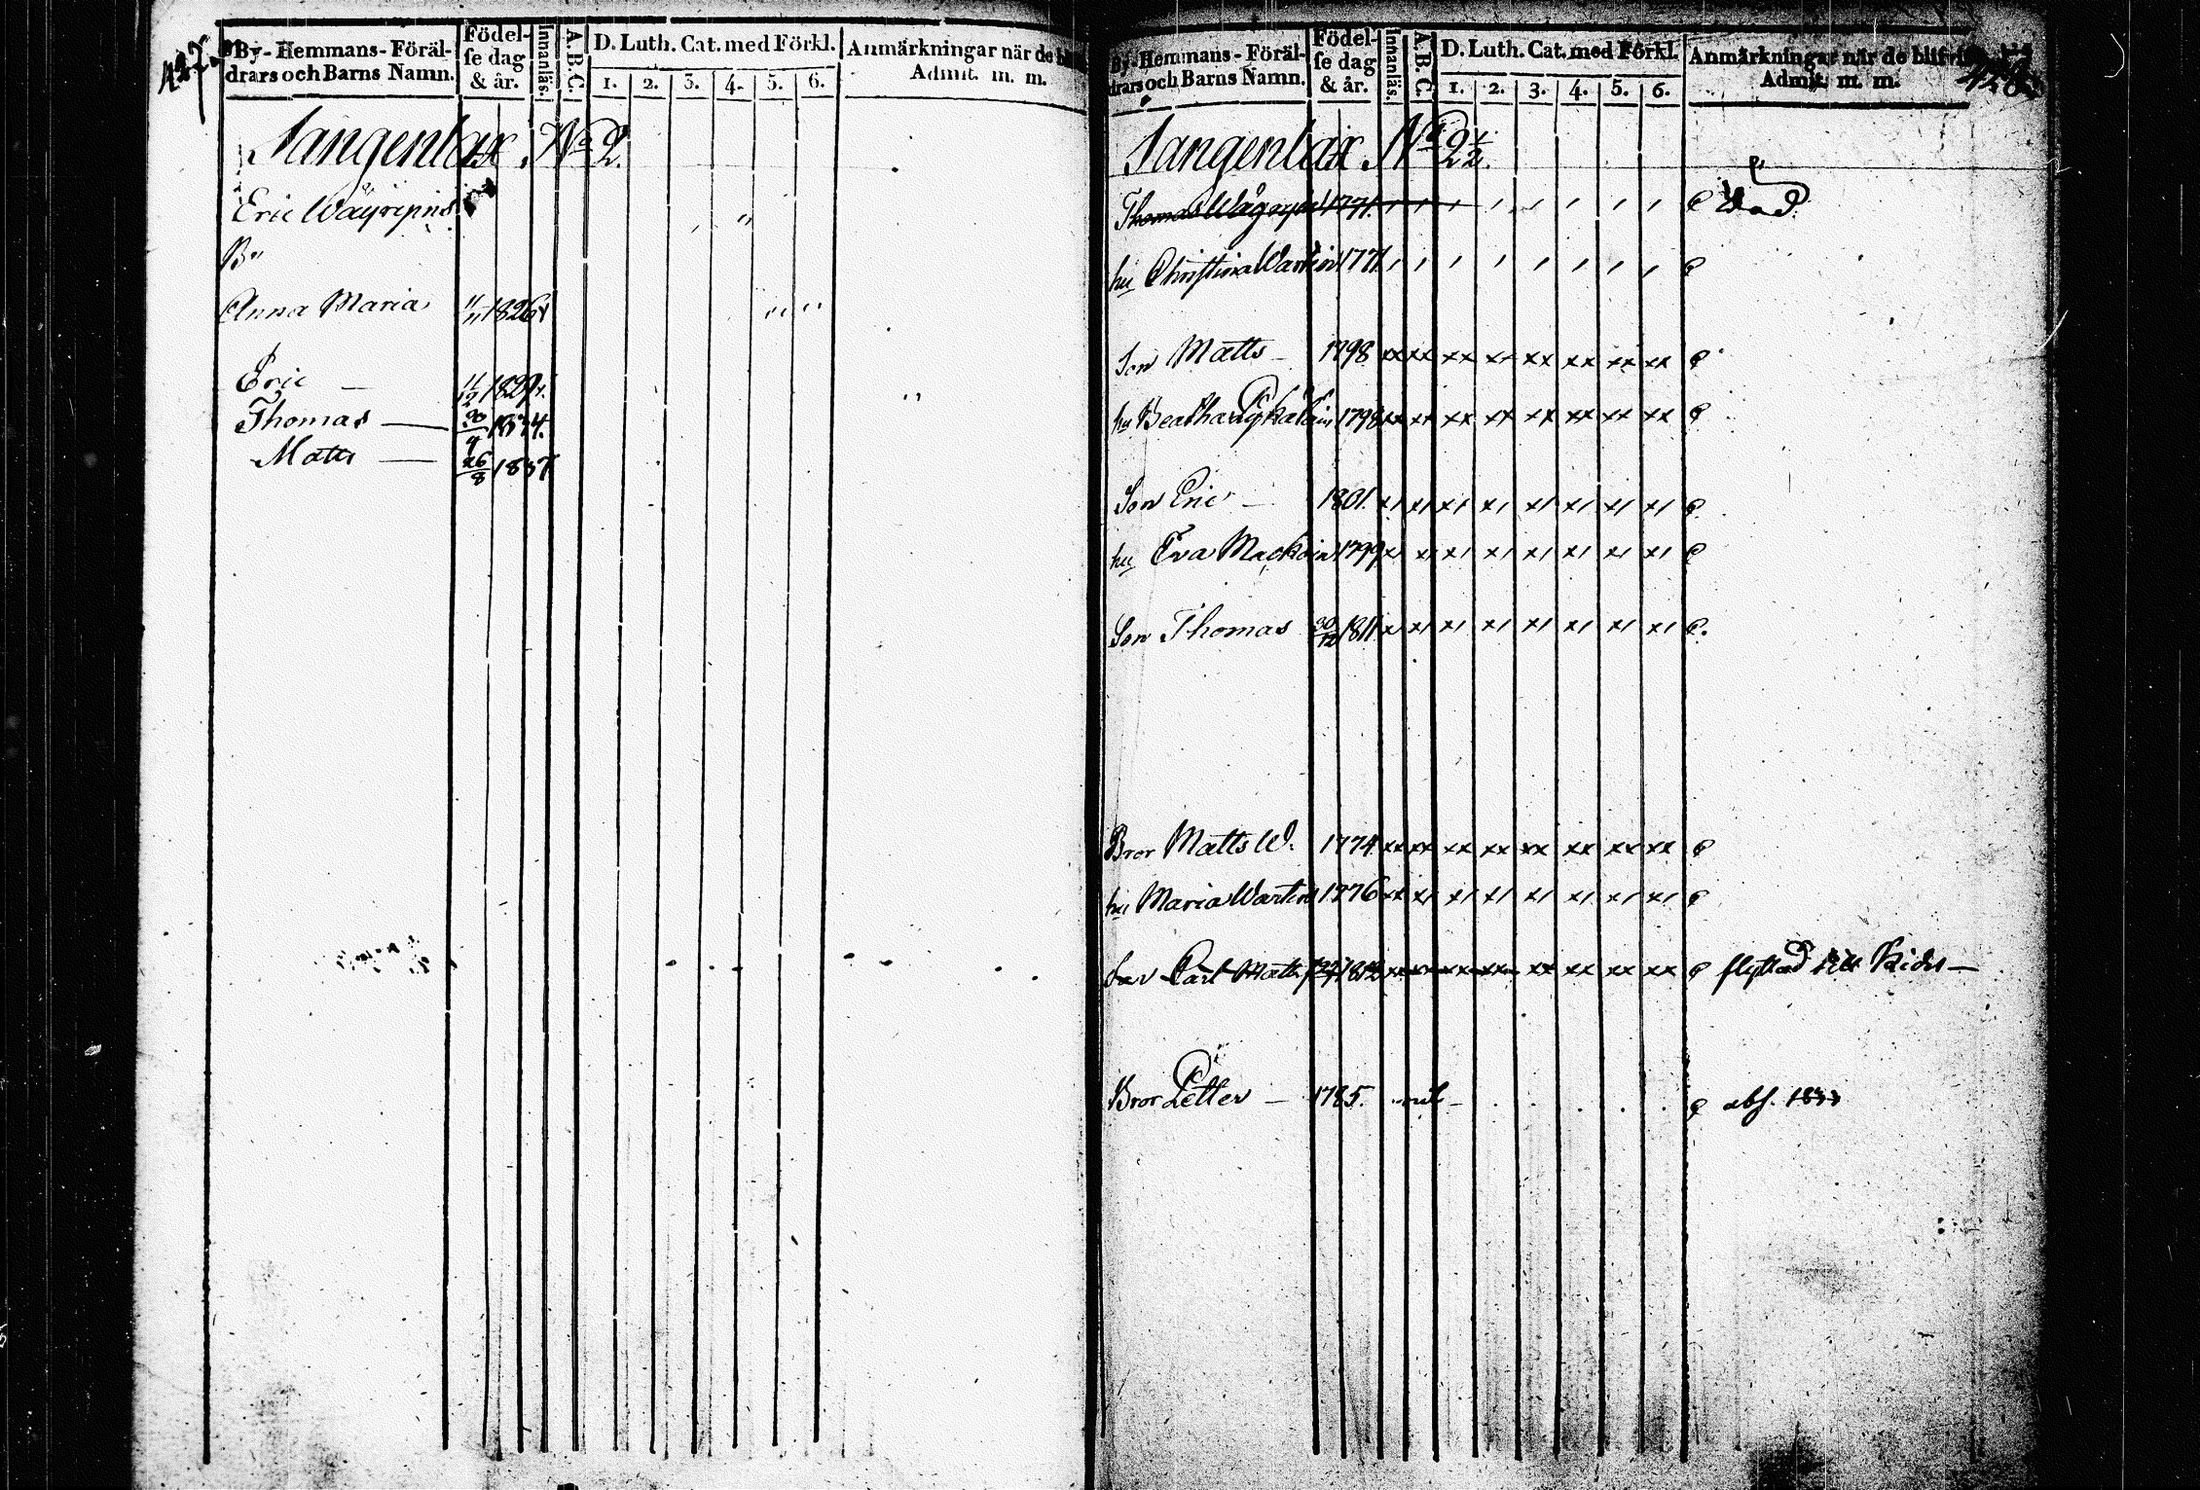 427.
By-Hemmans-Föräl-
drars och Barns Namn.
Födel-
se dag
& år.
Innanläs.
A.B.C.
D. Luth. Cat. med Förkl.
1. 2. 3. 4. 5. 6.
Anmärkningar när de bli
Admit. m. m.
Tangenlax. No 2.
Eric Wäyrynns
Bn
Anna Maria 11/11 1826
Eric — 11/12 1829.
Thomas — 30/9 1834.
Matts — 26/8 1837
By-Hemmans-Föräl-
drars och Barns Namn.
Födel-
se dag
& år.
Innanläs.
A.B.C.
D. Luth. Cat. med Förkl.
1. 2. 3. 4. 5. 6.
Anmärkningar när de blifvit
Admit. m. m.
428.
Tangenlax No 2 1/2.
Thomas 1771. död.
hu Christina 1771
Son Matts — 1798 xx xx xx xx xx xx xx xx
hu Beatha 1798 xx xx xx xx xx xx xx xx
Son Eric — 1801. x/ x/ x/ x/ x/ x/ x/ x/
hu Eva 1799 x/ x/ x/ x/ x/ x/ x/ x/
Son Thomas 30/12 1811 x/ x/ x/ x/ x/ x/ x/ x/
Bror Matts W. 1774 xx xx xx xx xx xx xx xx
hu Maria 1776 xx x/ x/ x/ x/ x/ x/ x/
Son Carl Matts 1812 xx xx xx xx xx xx xx xx flyttad till Kides —
Bror Petter — 1785. nil — abs. 1833